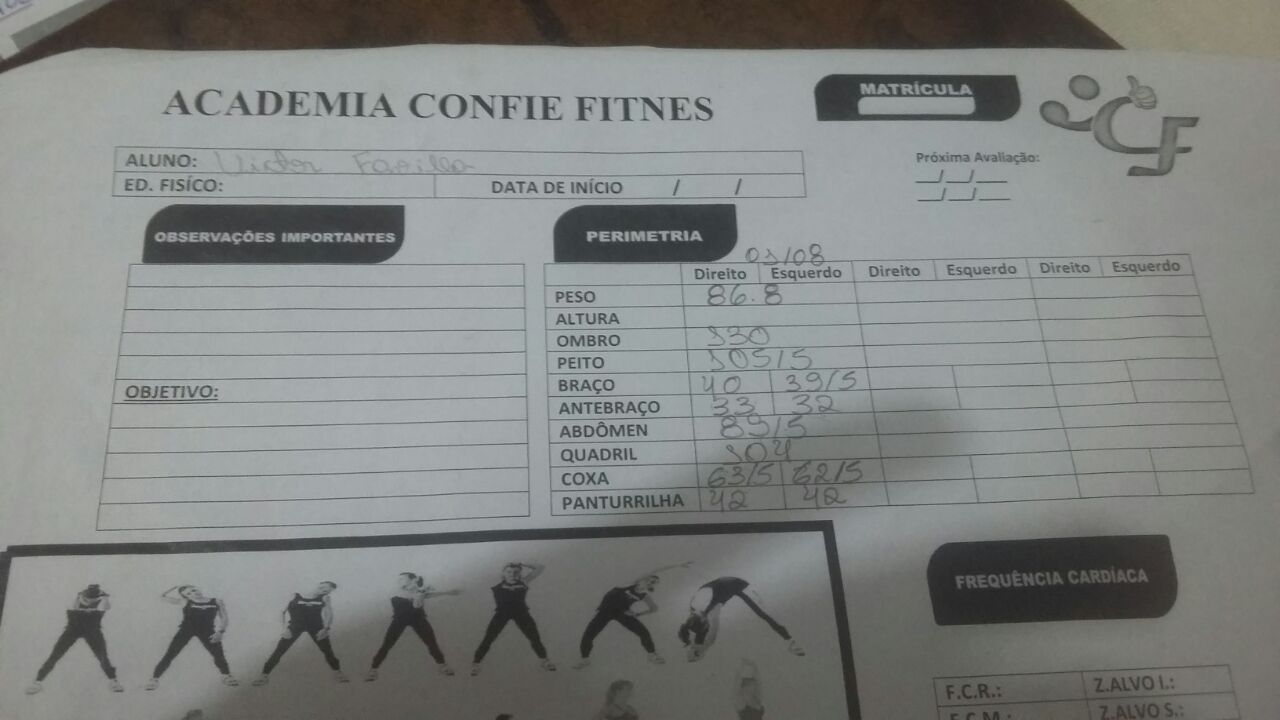 ACADEMIA CONFIE FITNES
MATRÍCULA
CF
ALUNO: Victor
Próxima Avaliação:
__/__/__
__/__/__
ED. FISÍCO: DATA DE INÍCIO / /
OBSERVAÇÕES IMPORTANTES
OBJETIVO:
PERIMETRIA
03/08
Direito Esquerdo Direito Esquerdo Direito Esquerdo
PESO 86.8
ALTURA
OMBRO 130
PEITO 105/5
BRAÇO 40 39/5
ANTEBRAÇO 33 32
ABDÔMEN 89/5
QUADRIL 104
COXA 63/5 62/5
PANTURRILHA 42 42
FREQUÊNCIA CARDÍACA
F.C.R.: Z.ALVO I.:
F.C.M.: Z.ALVO S.: